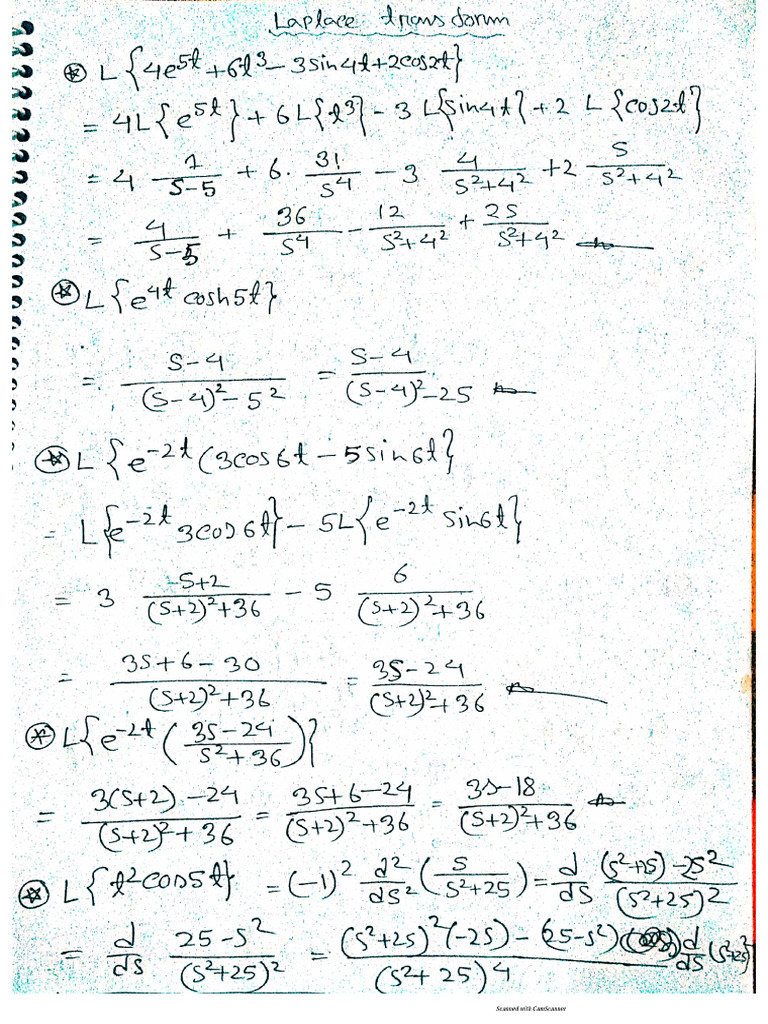 Laplace transform
⊛ L{4e^5t + 6t^3 - 3sin4t + 2cos2t}
= 4L{e^5t} + 6L{t^3} - 3 L{sin4t} + 2 L{cos2t}
= 4 1/(s-5) + 6. 3!/s^4 - 3 4/(s^2+4^2) + 2 s/(s^2+4^2)
= 4/(s-5) + 36/s^4 - 12/(s^2+4^2) + 2s/(s^2+4^2)
⊛ L{e^4t cosh5t}
= (s-4)/((s-4)^2-5^2) = (s-4)/((s-4)^2-25)
⊛ L{e^-2t (3cos6t - 5sin6t}
= L{e^-2t 3cos6t} - 5L{e^-2t sin6t}
= 3 (s+2)/((s+2)^2+36) - 5 6/((s+2)^2+36)
= (3s+6-30)/((s+2)^2+36) = (3s-24)/((s+2)^2+36)
⊛ L{e^-2t ((3s-24)/(s^2+36))}
= (3(s+2)-24)/((s+2)^2+36) = (3s+6-24)/((s+2)^2+36) = (3s-18)/((s+2)^2+36)
⊛ L{t^2cos5t} = (-1)^2 d^2/ds^2 (s/(s^2+25)) = d/ds ((s^2+25)-2s^2)/(s^2+25)^2
= d/ds (25-s^2)/(s^2+25)^2 = ((s^2+25)^2(-2s) - (25-s^2) d/ds (s^2+25)/(s^2+25)^4
Scanned with CamScanner